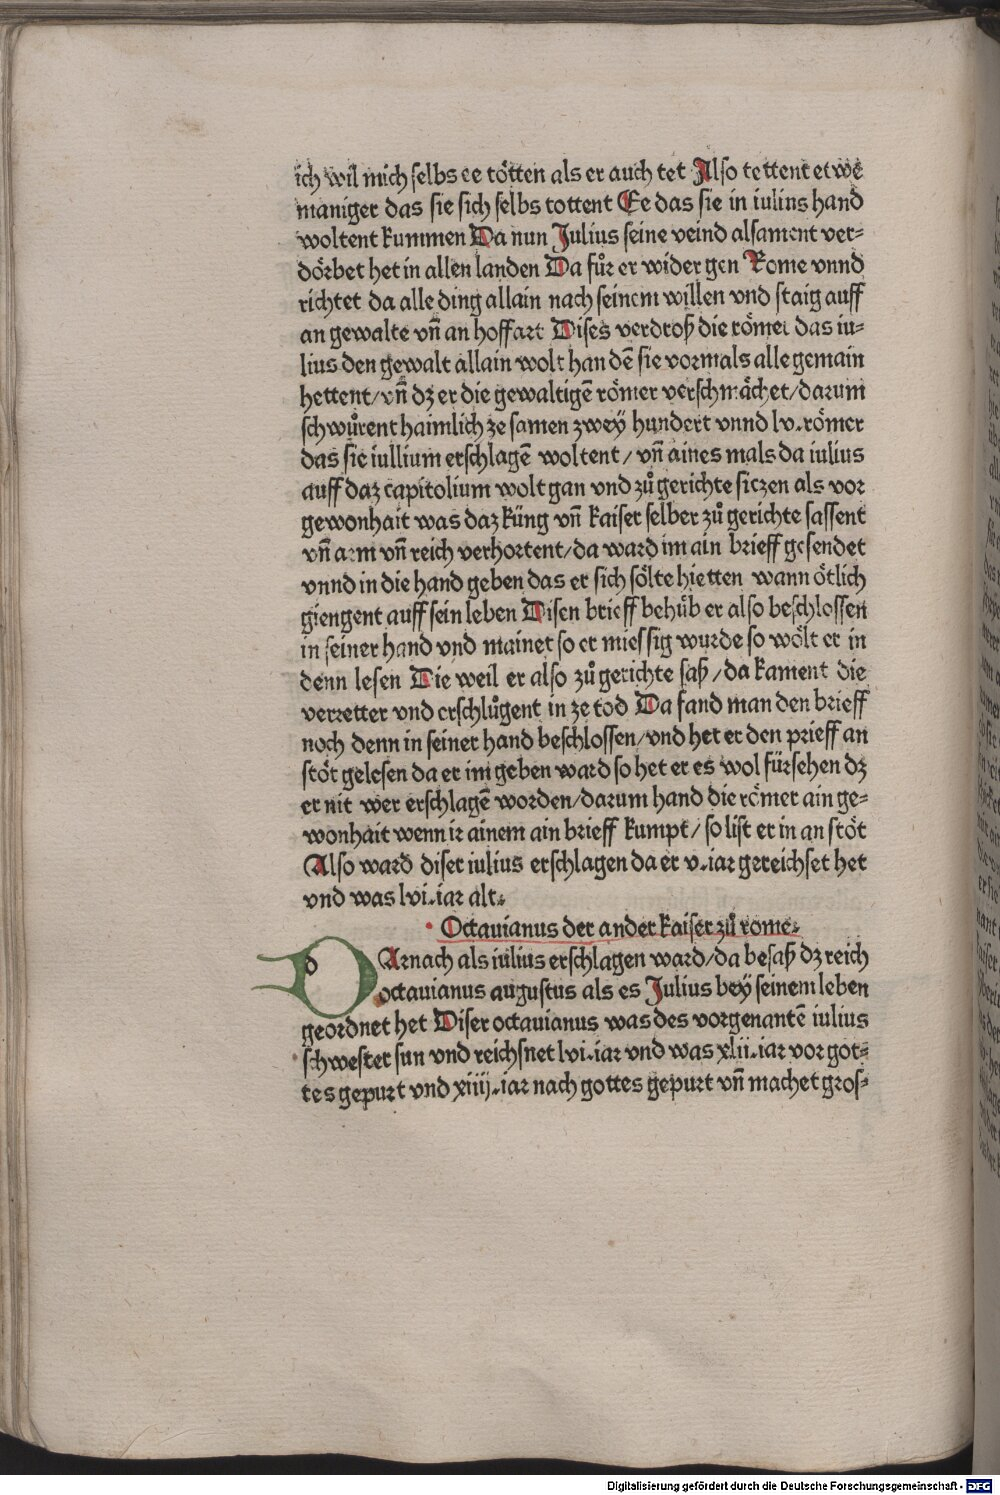 ich wil mich selbs ee tötten als er auch tet Also tettent etwe
maniger das sie sich selbs tottent Ee das sie in iulius hand
woltent kummen Da nun Julius seine veind alsament ver⸗
dörbet het in allen landen Da fůr er wider gen Rome vnnd
richtet da alle ding allain nach seinem willen vnd staig auff
an gewalte vn̄ an hoffart Dises verdroß die römer das iu⸗
lius den gewalt allain wolt han dē sie vormals alle gemain
hettent/vn̄ dz er die gewaltigē römer verschmächet/darum
schwůrent haimlich ze samen zwey hundert vnnd lv.römer
das sie iullium erschlagē woltent/vn̄ aines mals da iulius
auff daz capitolium wolt gan vnd zů gerichte siczen als vor
gewonhait was daz küng vn̄ kaiser selber zů gerichte sassent
vn̄ arm vn̄ reich verhortent/da ward im ain brieff gesendet
vnnd in die hand geben das er sich sölte hietten wann ötlich
giengent auff sein leben Disen brieff behůb er also beschlossen
in seiner hand vnd mainet so er miessig wurde so wölt er in
denn lesen Die weil er also zů gerichte saß/da kament die
verretter vnd erschlůgent in ze tod Da fand man den brieff
noch denn in seiner hand beschlossen/vnd het er den prieff an
stöt gelesen da er im geben ward so het er es wol fürsehen dz
er nit wer erschlagē worden/darum hand die römer ain ge⸗
wonhait wenn ir ainem ain brieff kumpt/so list er in an stöt
Also ward diser iulius erschlagen da er v.iar gereichset het
vnd was lvi.iar alt.
Octauianus der ander kaiser zů rome.
d DArnach als iulius erschlagen ward/da besaß dz reich
octauianus augustus als es Julius bey seinem leben
geordnet het Diser octauianus was des vorgenantē iulius
schwester sun vnd reichsnet lvi.iar vnd was xlii.iar vor got⸗
tes gepurt vnd xiiij.iar nach gottes gepurt vn̄ machet gros⸗
Digitalisierung gefördert durch die Deutsche Forschungsgemeinschaft - DFG